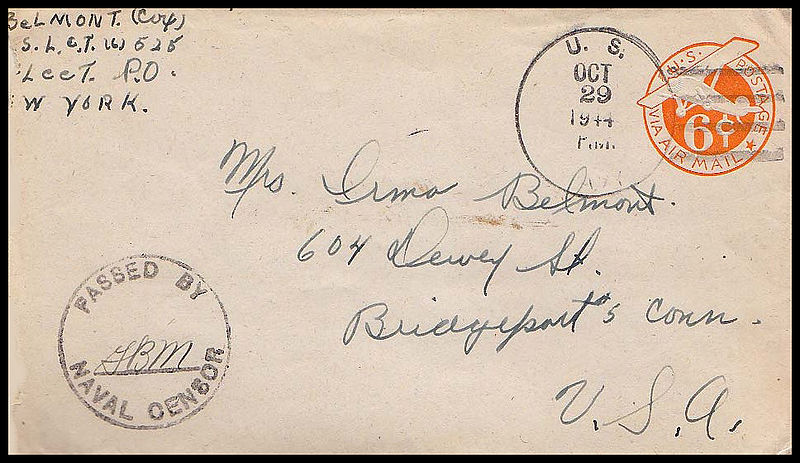 BELMONT. (Cox)
S. L.C.T. (6) 525
LEET. P.O.
W YORK.
U. S.
OCT
29
1944
P.M.
U.S. POSTAGE
6¢
VIA AIR MAIL
Mrs. Irma Belmont.
604 Dewey St.
Bridgeport 5 Conn.
U.S.A.
PASSED BY
GBM
NAVAL CENSOR